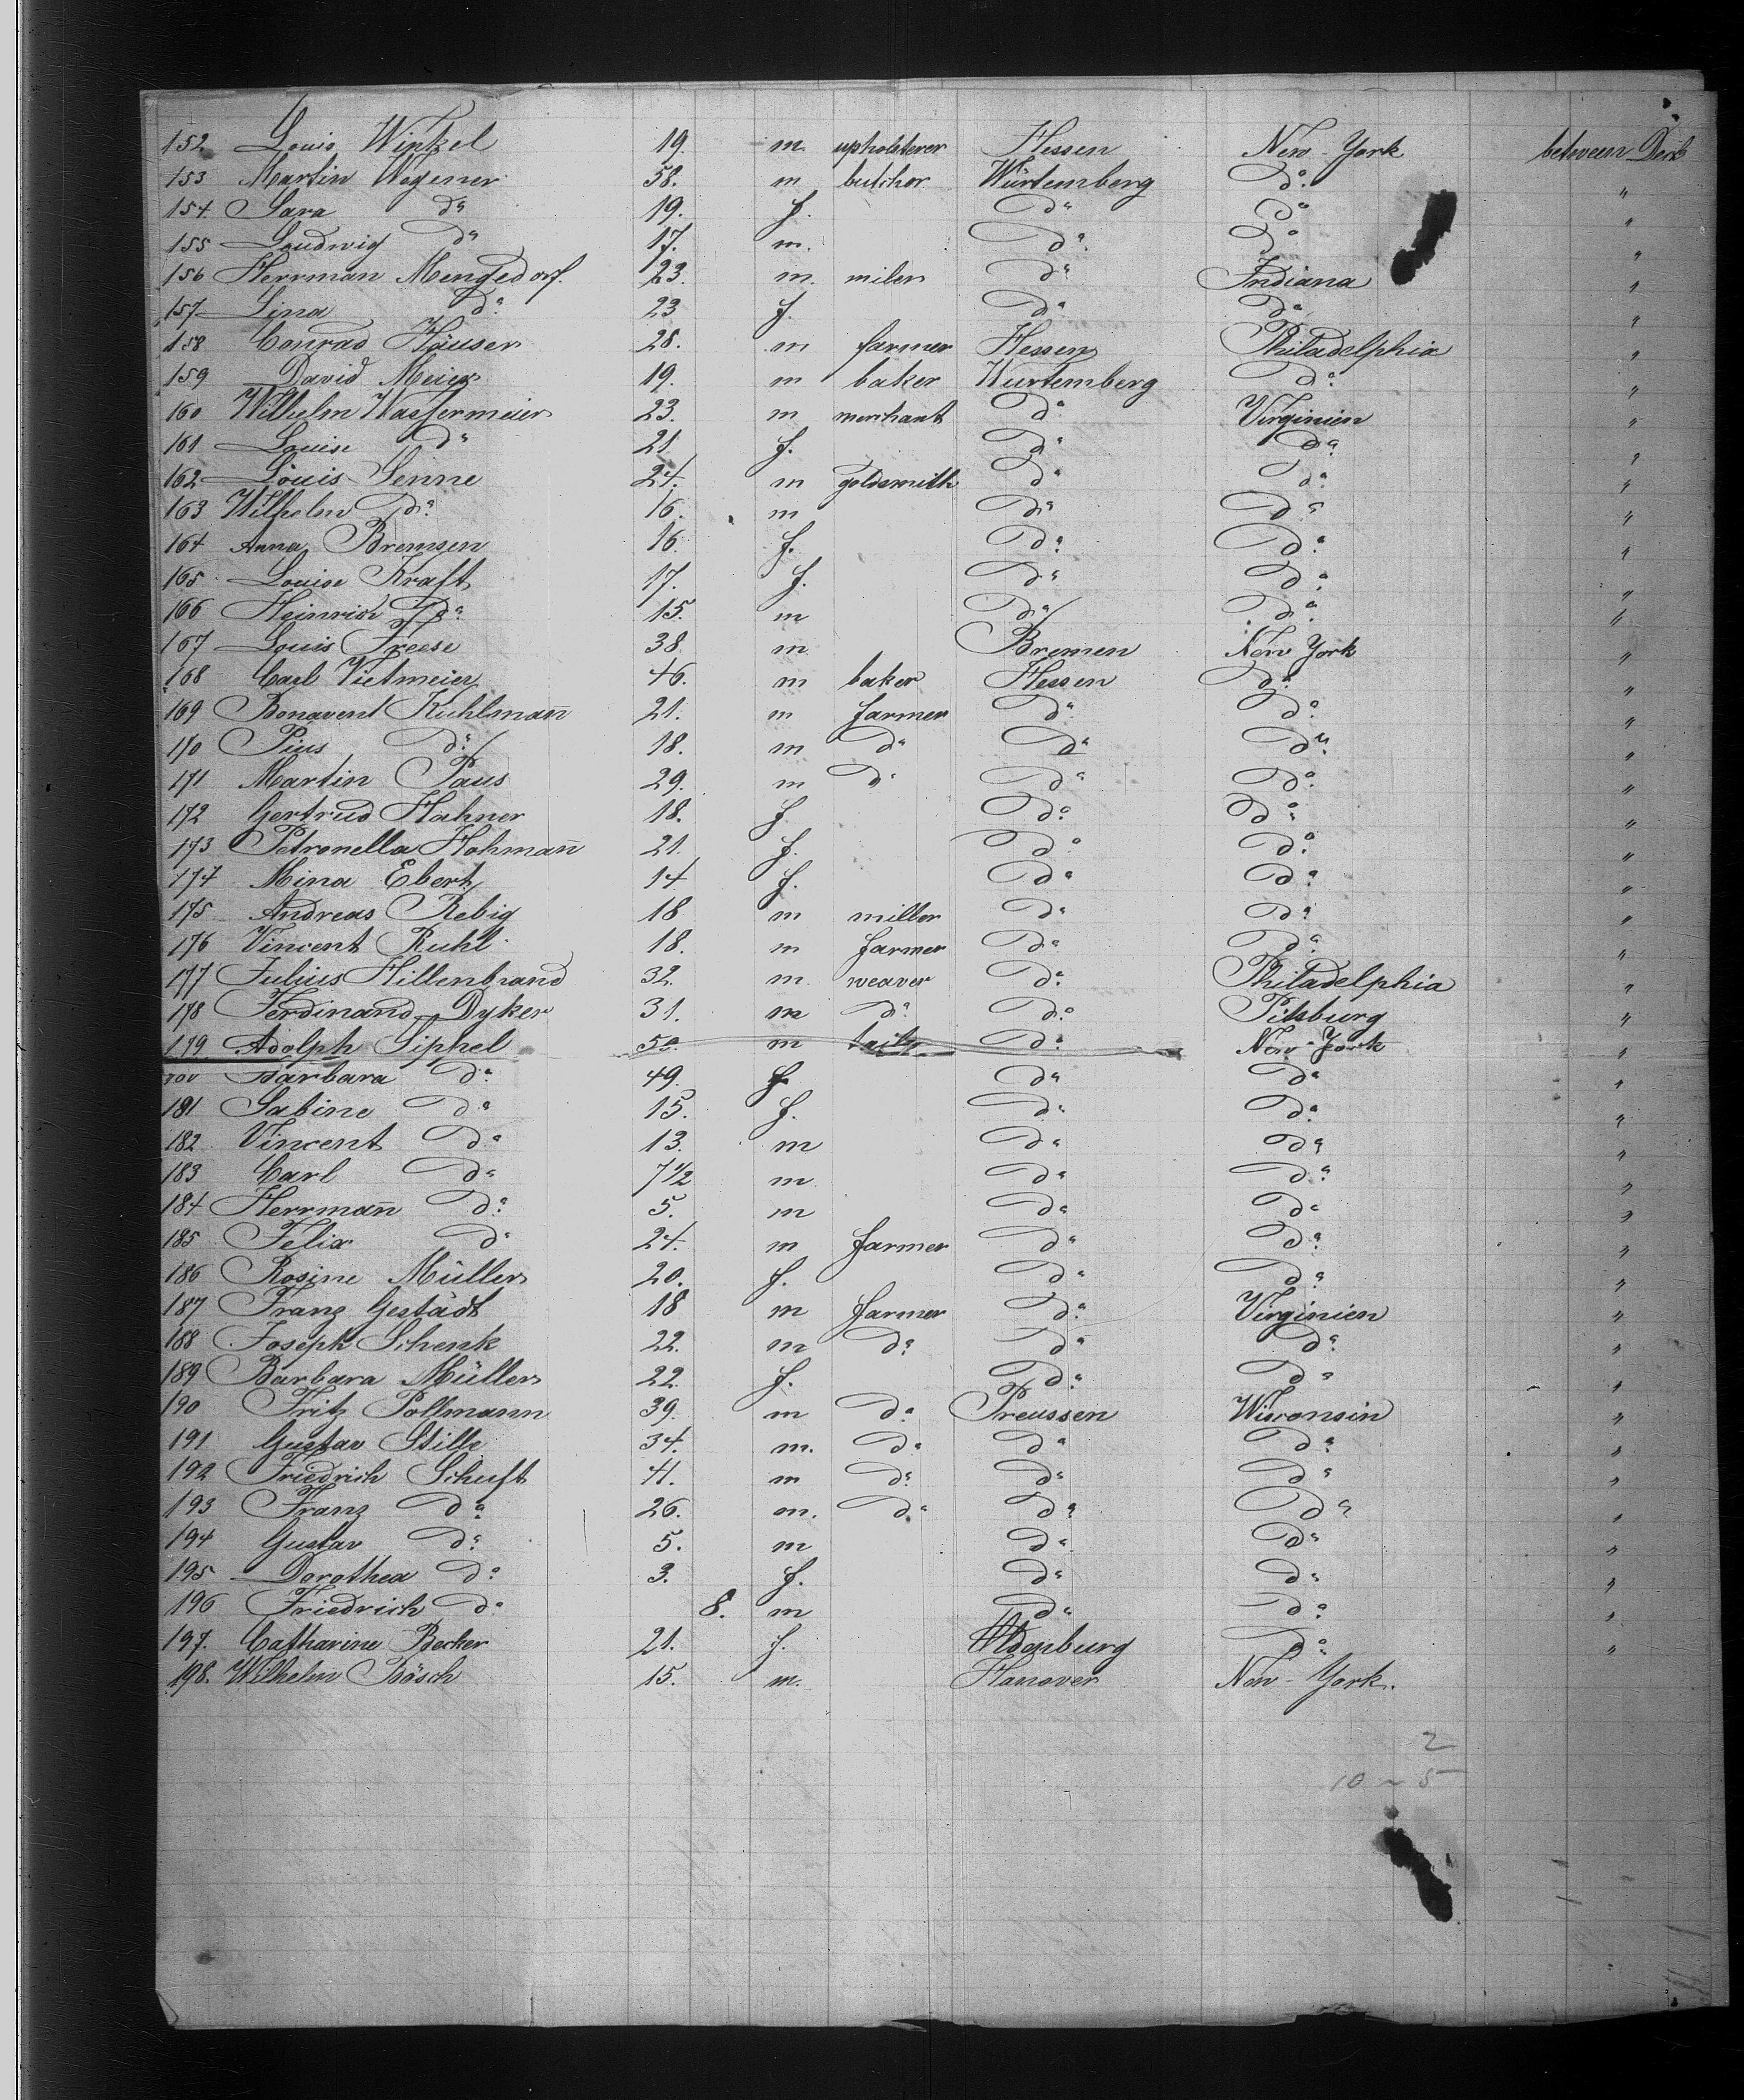 152 Louis Wintzel 19. m. upholsterer Hessen New-York between Deck
153 Martin Wegener 58. m butcher Würtemberg do. "
154 Sara do 19. f. do do "
155 Loudwig do 17. m. do do "
156 Herrman Mengedorf. 23. m. miler do Indiana "
157 Lina do 23 f. do do "
158 Conrad Häuser 28. m farmer Hessen Philadelphia "
159 David Meier 19. m baker Wurtemberg do. "
160 Wilhelm Wassermeier 23. m merchant do Virginien "
161 Louise do 21 f. do do "
162 Louis Senne 24. m goldsmith do do "
163 Wilhelm do. 16. m do do "
164 Anna Bremsen 16. f. do. do. "
165 Louise Kraft 17. f. do do. "
166 Heinrich do 15. m do do. "
167 Louis Freese 38. m Bremen New York "
168 Carl Vietmeier 46. m baker Hessen do. "
169 Bonavent Kuhlman̄ 21. m farmer do. do. "
170 Pius do. 18. m do do do. "
171 Martin Paus 29. m do do do. "
172 Gertrud Hahner 18. f. do. do. "
173 Petronella Hohman̄ 21. f. do. do. "
174 Mina Ebert 14 f. do do "
175 Andreas Rebig 18 m miller do do. "
176 Vincent Ruhl 18. m farmer do do. "
177 Julius Hillenbrand 32. m. weaver do. Philadelphia "
178 Ferdinand Dyker 31. m do. do. Pitsburg "
179 Adolph Siphel 50. m tailor do. New-York "
Barbara do. 49. f. do do "
181 Sabine do 15. f. do. do. "
182 Vincent do 13. m do do "
183 Carl do 7 1/2 m do do. "
184 Herrman̄ do. 5. m do do "
185 Felix do 24. m farmer do do. "
186 Rosine Müller 20. f. do do. "
187 Franz Gestädt 18 m farmer do. Virginien "
188 Joseph Schenk 22. m do. do do. "
189 Barbara Müller 22. f. do. do "
190 Fritz Pollmann 39. m do. Preussen Wisconsin "
191 Gustav Stille 34. m. do do do. "
192 Friedrich Schuft 41. m do. do. do "
193 Franz do. 26. m. do. do. do "
194 Gustav do. 5. m do. do "
195 Dorothea do. 3. f. do. do. "
196 Friedrich do. 8. m do. do. "
197. Catharine Becker 21. f. Oldenburg do. "
198. Wilhelm Bösch 15. m. Hanover New-York.
2
10 ~ 5